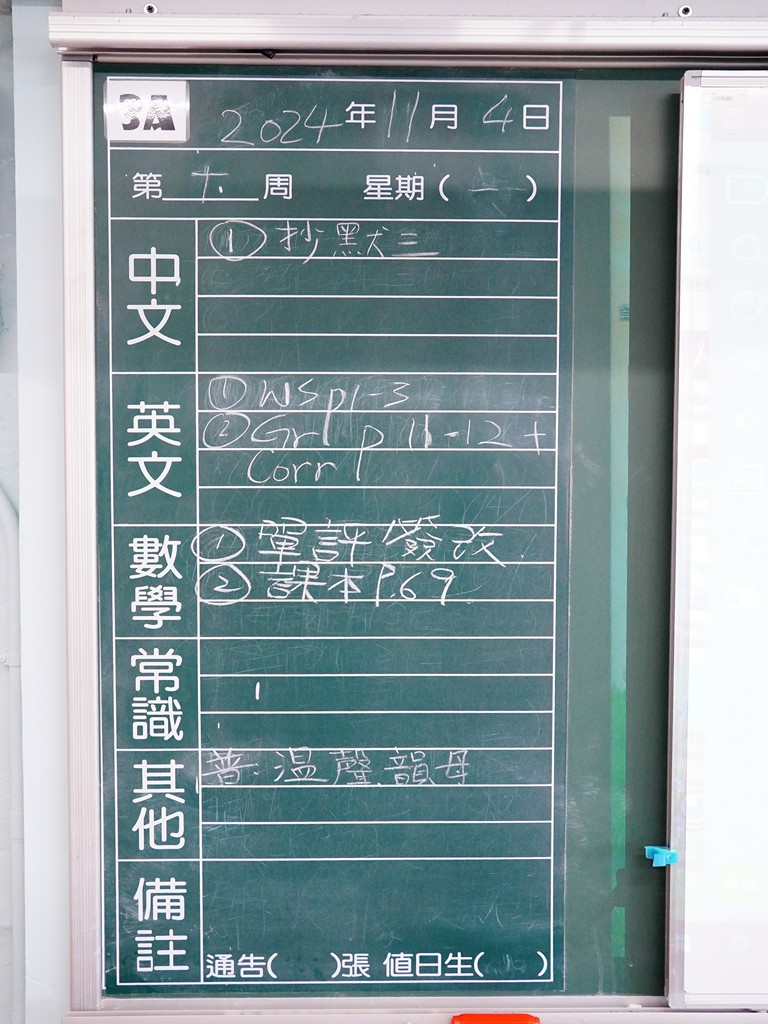 3A
2024年11月4日
第十周 星期(一)
中文
① 抄默三
英文
① WS p1-3
② Gr1 p 11-12 +
Corr 1
數學
① 單評簽改
② 課本P.69
常識
其他
普·溫聲韻母
備註
通告( )張 值日生( )